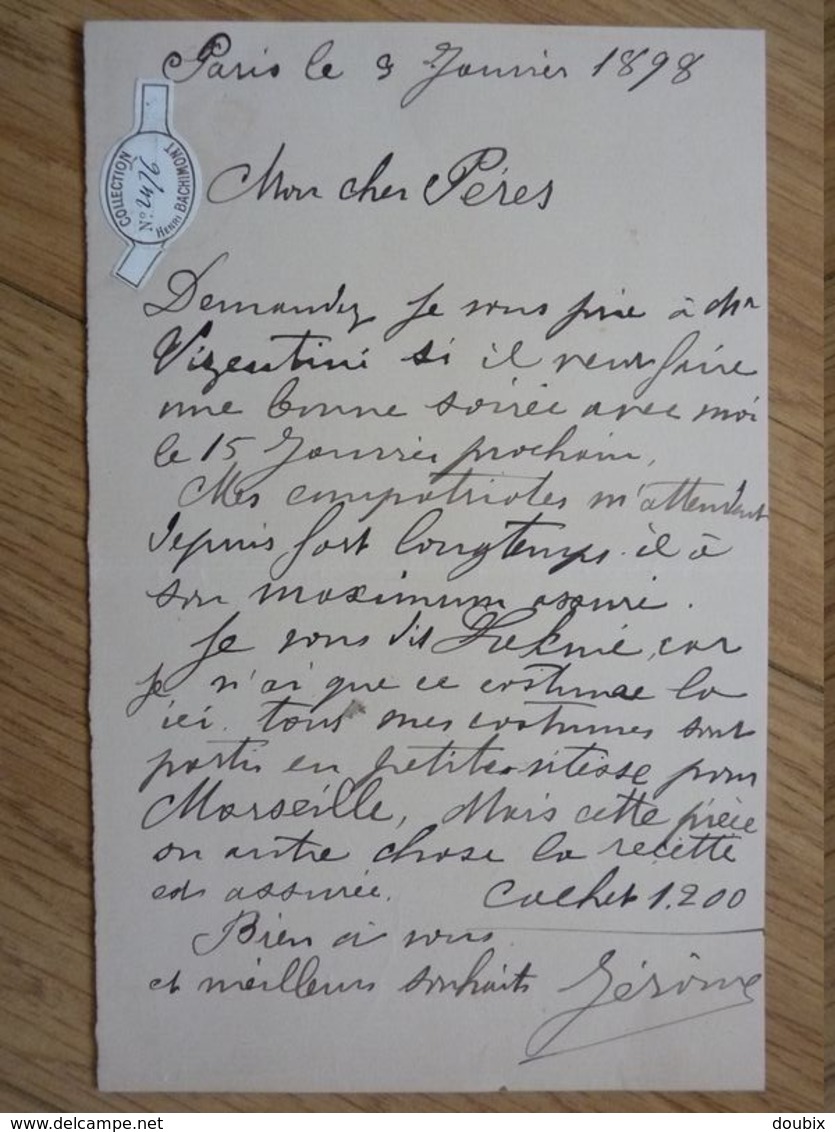 Paris le 3 Janvier 1898
COLLECTION
No: 2476
HENRI BACHIMONT
Mon cher Péres
Demandez je vous prie à Mr
Vizentini si il veut faire
une bonne soirée avec moi
le 15 Janvier prochain,
Mes compatriotes m'attendent
depuis fort longtemps. il à
son maximum assuré.
Je vous dit Lakmé, car
je n'ai que ce costume la
ici. tous mes costumes sont
partis en petite vitesse pour
Marseille, Mais cette pièce
ou autre chose la recette
est assurée. Cachet 1.200
Bien à vous
et meilleurs souhaits Jérôme
delcampe.net
doubix